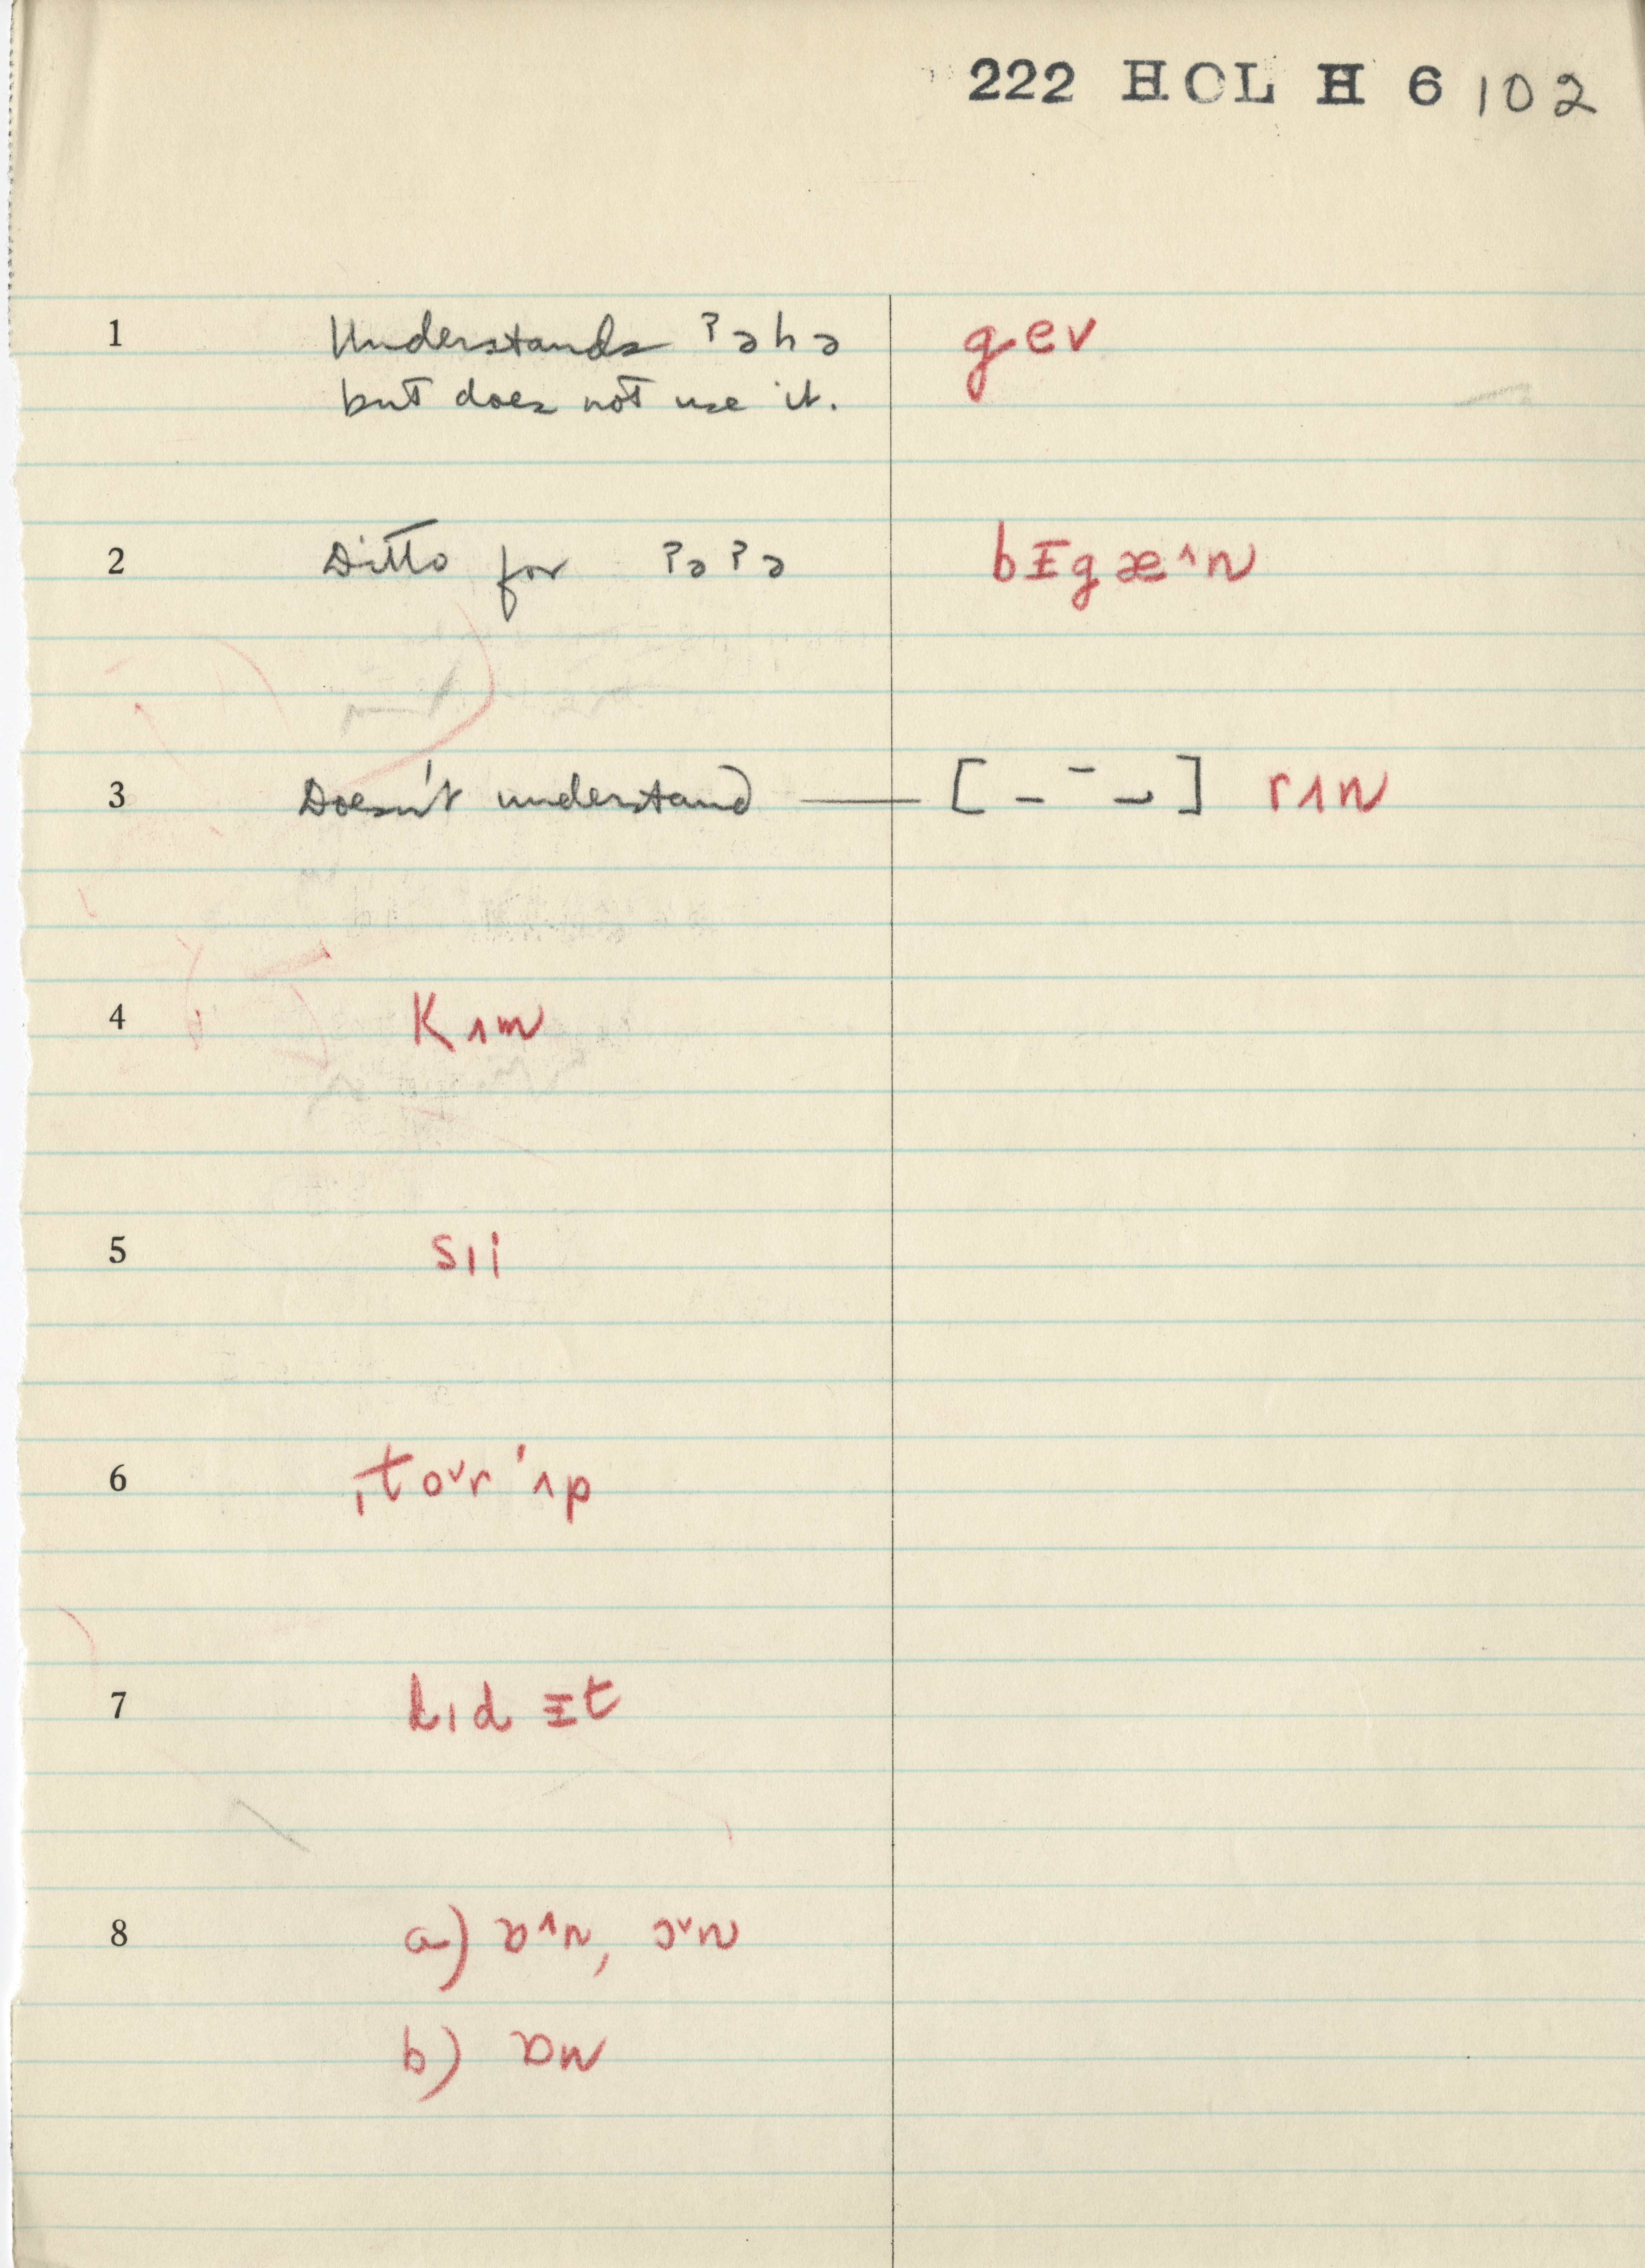 222 HOL H 6 102
1 Understands ʔəhə gev
but does not use it.
2 Ditto for ʔəʔə bɪgæ^n
3 Doesn't understand —— [ – ¯ ⌣ ] rʌn
4 Kʌm
5 sıi
6 ˌtoᵛr'ʌp
7 dıd ɪt
8 a) ɒ^n, ɔᵛn
b) ɒn